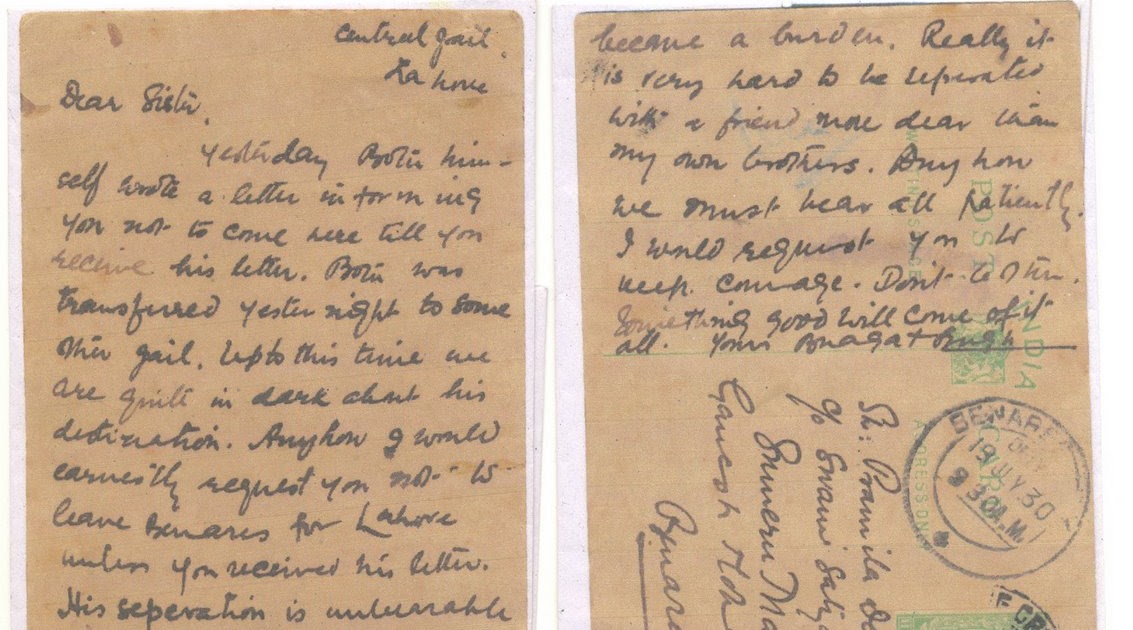 Central Jail.
Lahore
Dear Sister,
Yesterday Botu him-
self wrote a letter informing
you not to come here till you
receive his letter. Botu was
transfurred yester night to some
other jail. Upto this time we
are quite in dark about his
destination. Anyhow I would
earnestly request you not to
leave Benares for Lahore
unless you received his letter.
His seperation is unbearable
became a burden. Really it
is very hard to be seperated
with a friend more dear than
my own brothers. Any how
we must bear all patiently.
I would request you to
keep courage. Don't
Something good will come of it
all. Yours Bhagat Singh
POST
INDIA
ADDRESS ON
BENARES
19 JLY 30
9 30 A.M.
Sh: Pramila
C/o Swami Satya
Sumeru
Ganesh
Benares